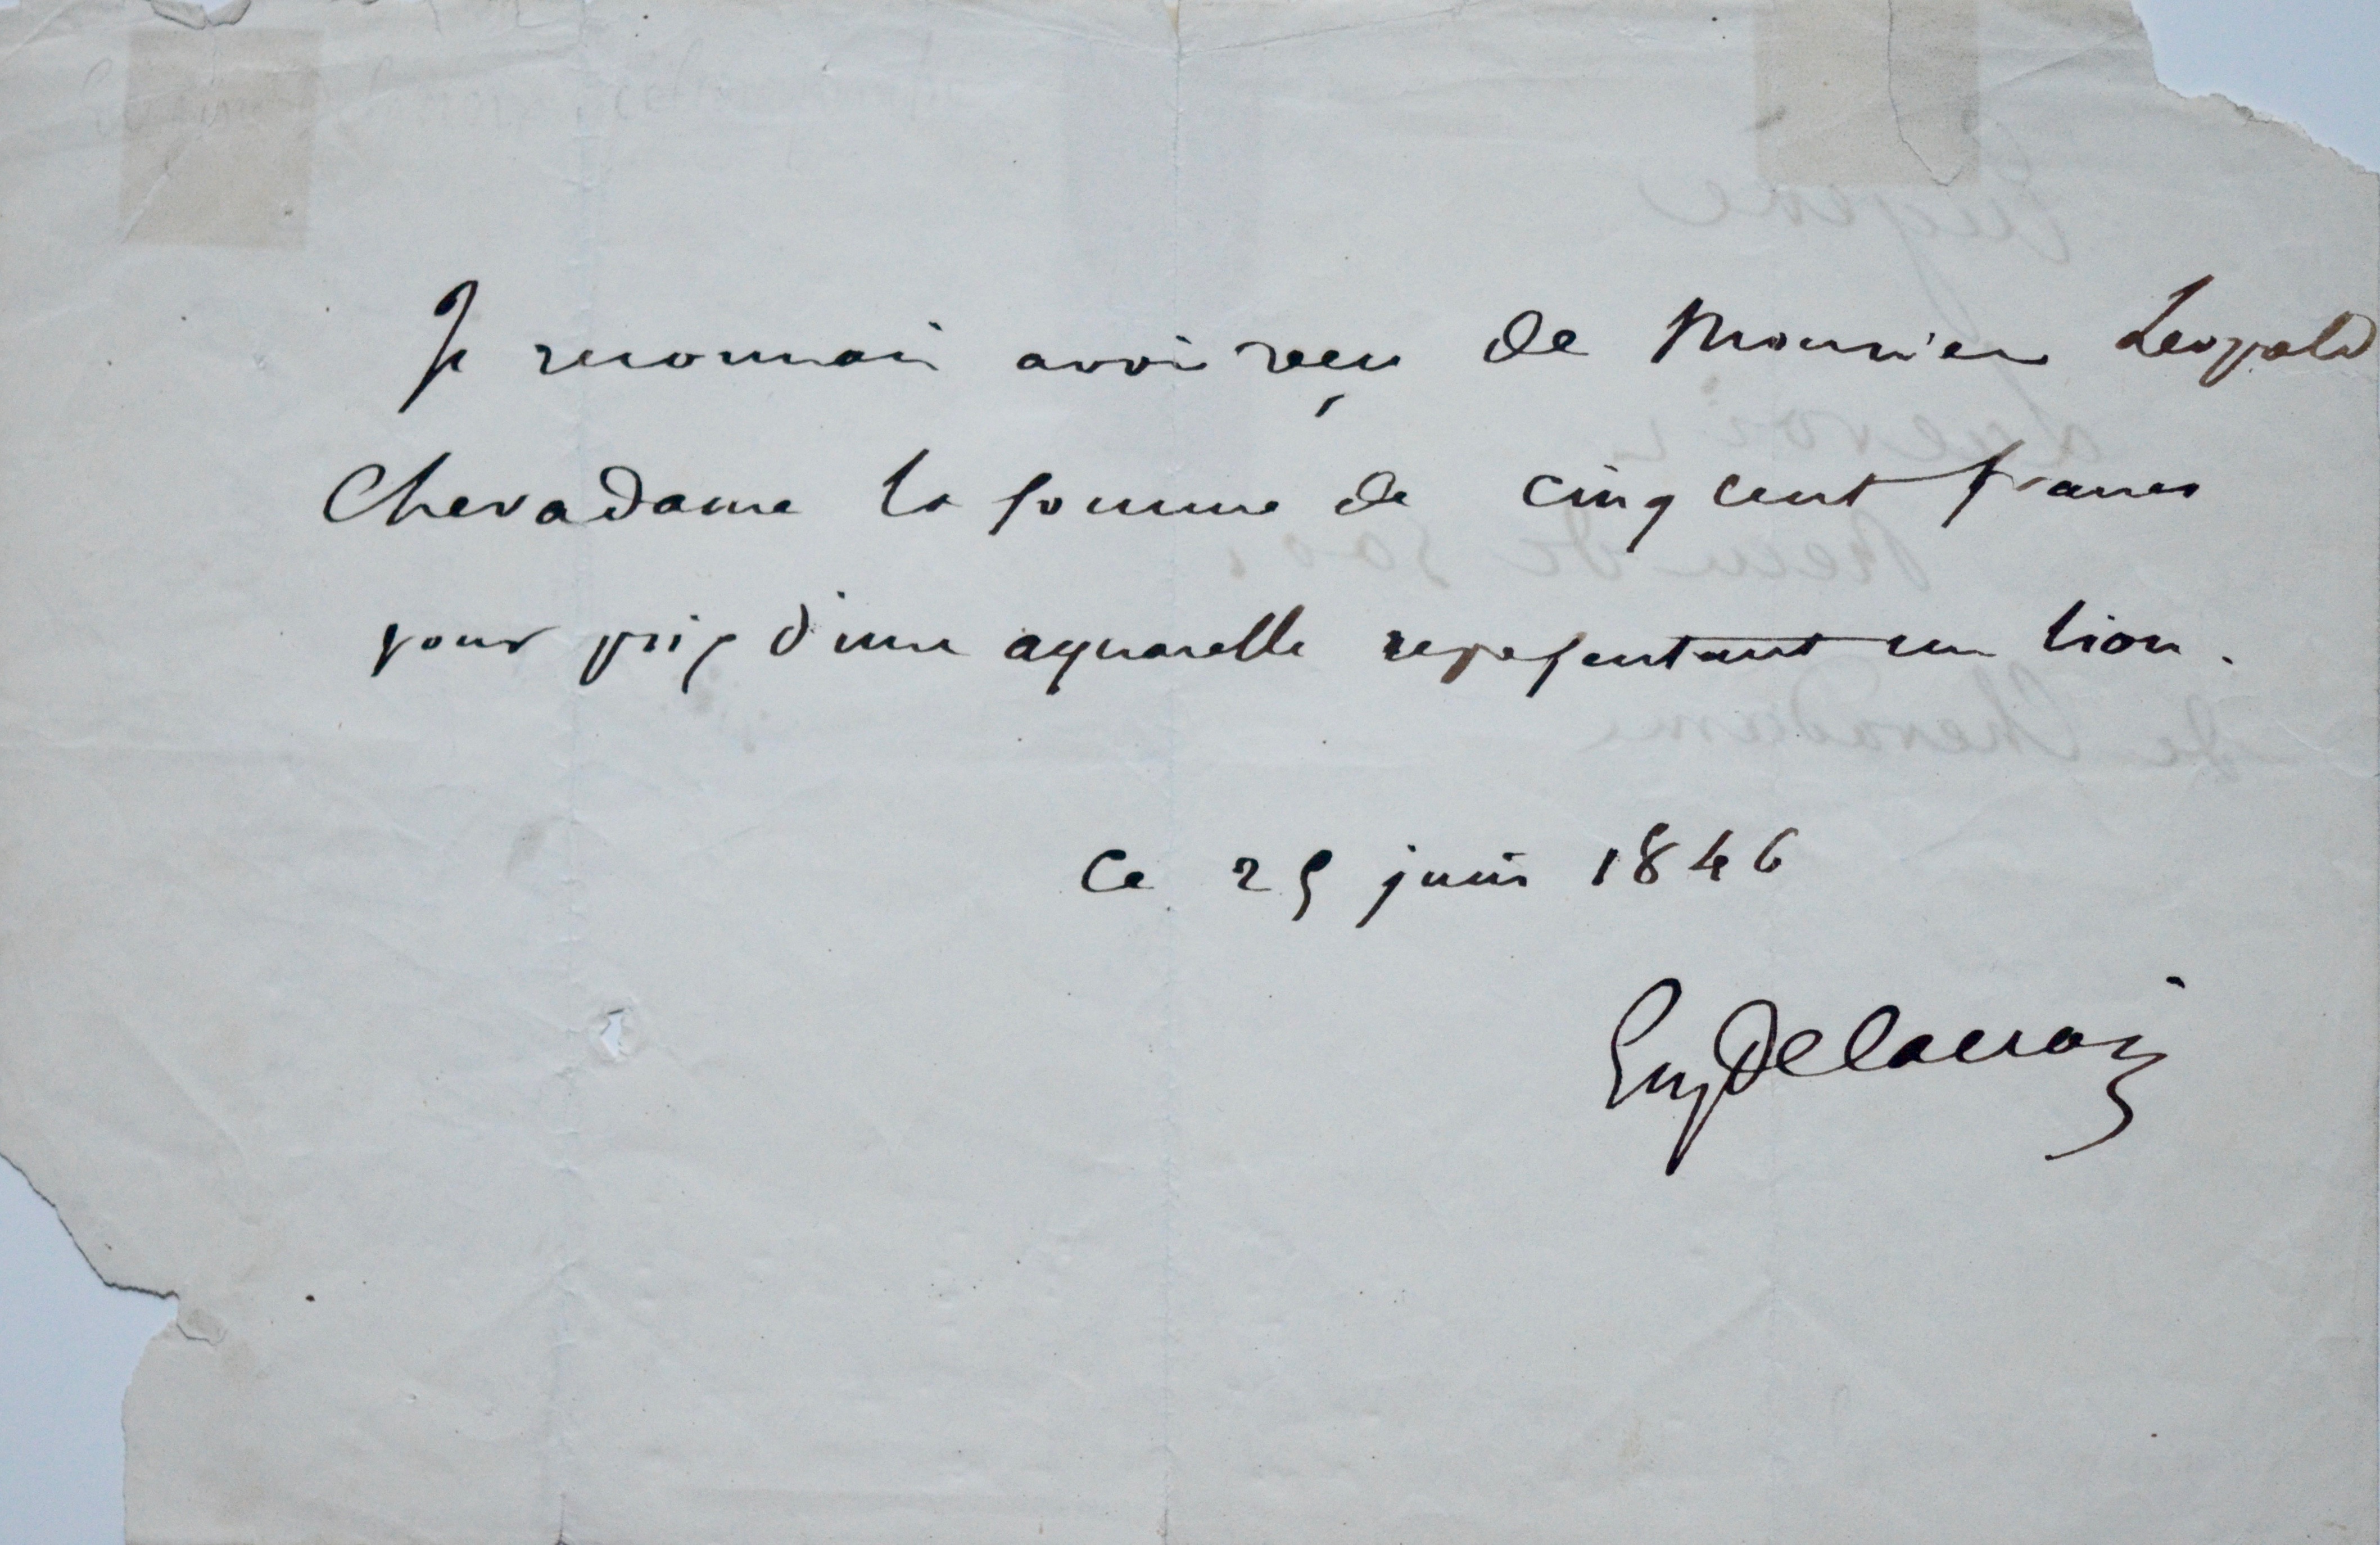 Je reconnais avoir reçu de Monsieur Leopold
Chevadame la somme de cinq cent francs
pour prix d'une aquarelle representant un lion.
Ce 25 juin 1846
Eug Delacroix
Eugene
Recu de 500
de Chevadame